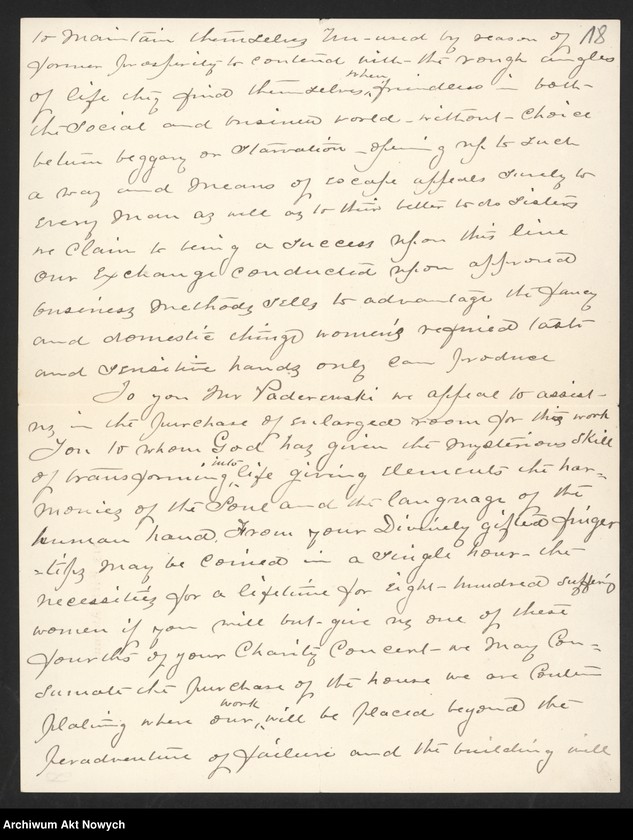 18
to maintain themselves Un-used by reason of
former prosperity to contend with the rough angles
of life they find themselves, when friendless in both
the Social and business world - without - choice
between beggary or Starvation - opening up to such
a way and means of escape appeals surely to
Every Man as well as to their better to do Sisters
we Claim to being a Success upon this line
Our Exchange Conducted upon approved
business methods Sells to advantage the fancy
and domestic things women's refined taste
and Sensitive hands only can produce
To you Mr Paderewski we appeal to assist
us in the purchase of enlarged room for this work
You to whom God has given the mysterious Skill
of transforming into life giving elements the har=
monies of the Soul and the language of the
human hand. From your Divinely gifted finger
=tips may be coined in a Single hour - the
necessities for a lifetime for Eight-hundred Suffering
women if you will but give us one of these
fourths of your Charity Concert - we may Con=
Sumate the purchase of the house we are Contem
plating where our work will be placed beyond the
peradventure of failure and the building will
Archiwum Akt Nowych